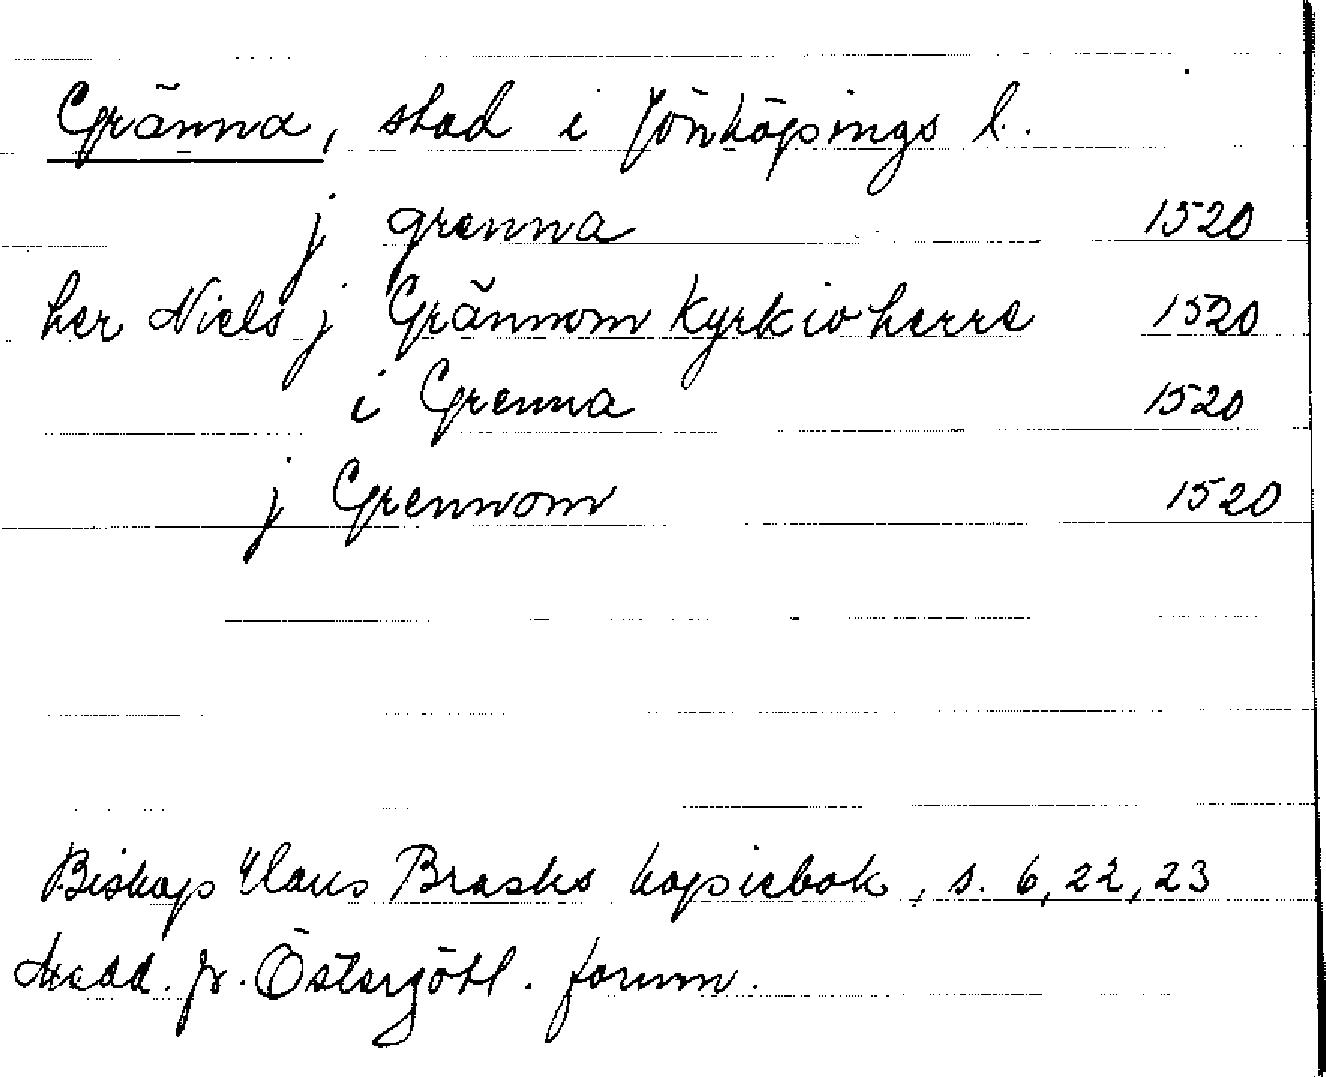 Gränna, stad i Jönköpings l.
j grenna 1520
her Niels j Grännom Kyrkioherre 1520
i Grenna 1520
j Grennom 1520
Biskop Hans Brasks kopiebok, s. 6, 22, 23
Medd. fr. Östergötl. fornm.